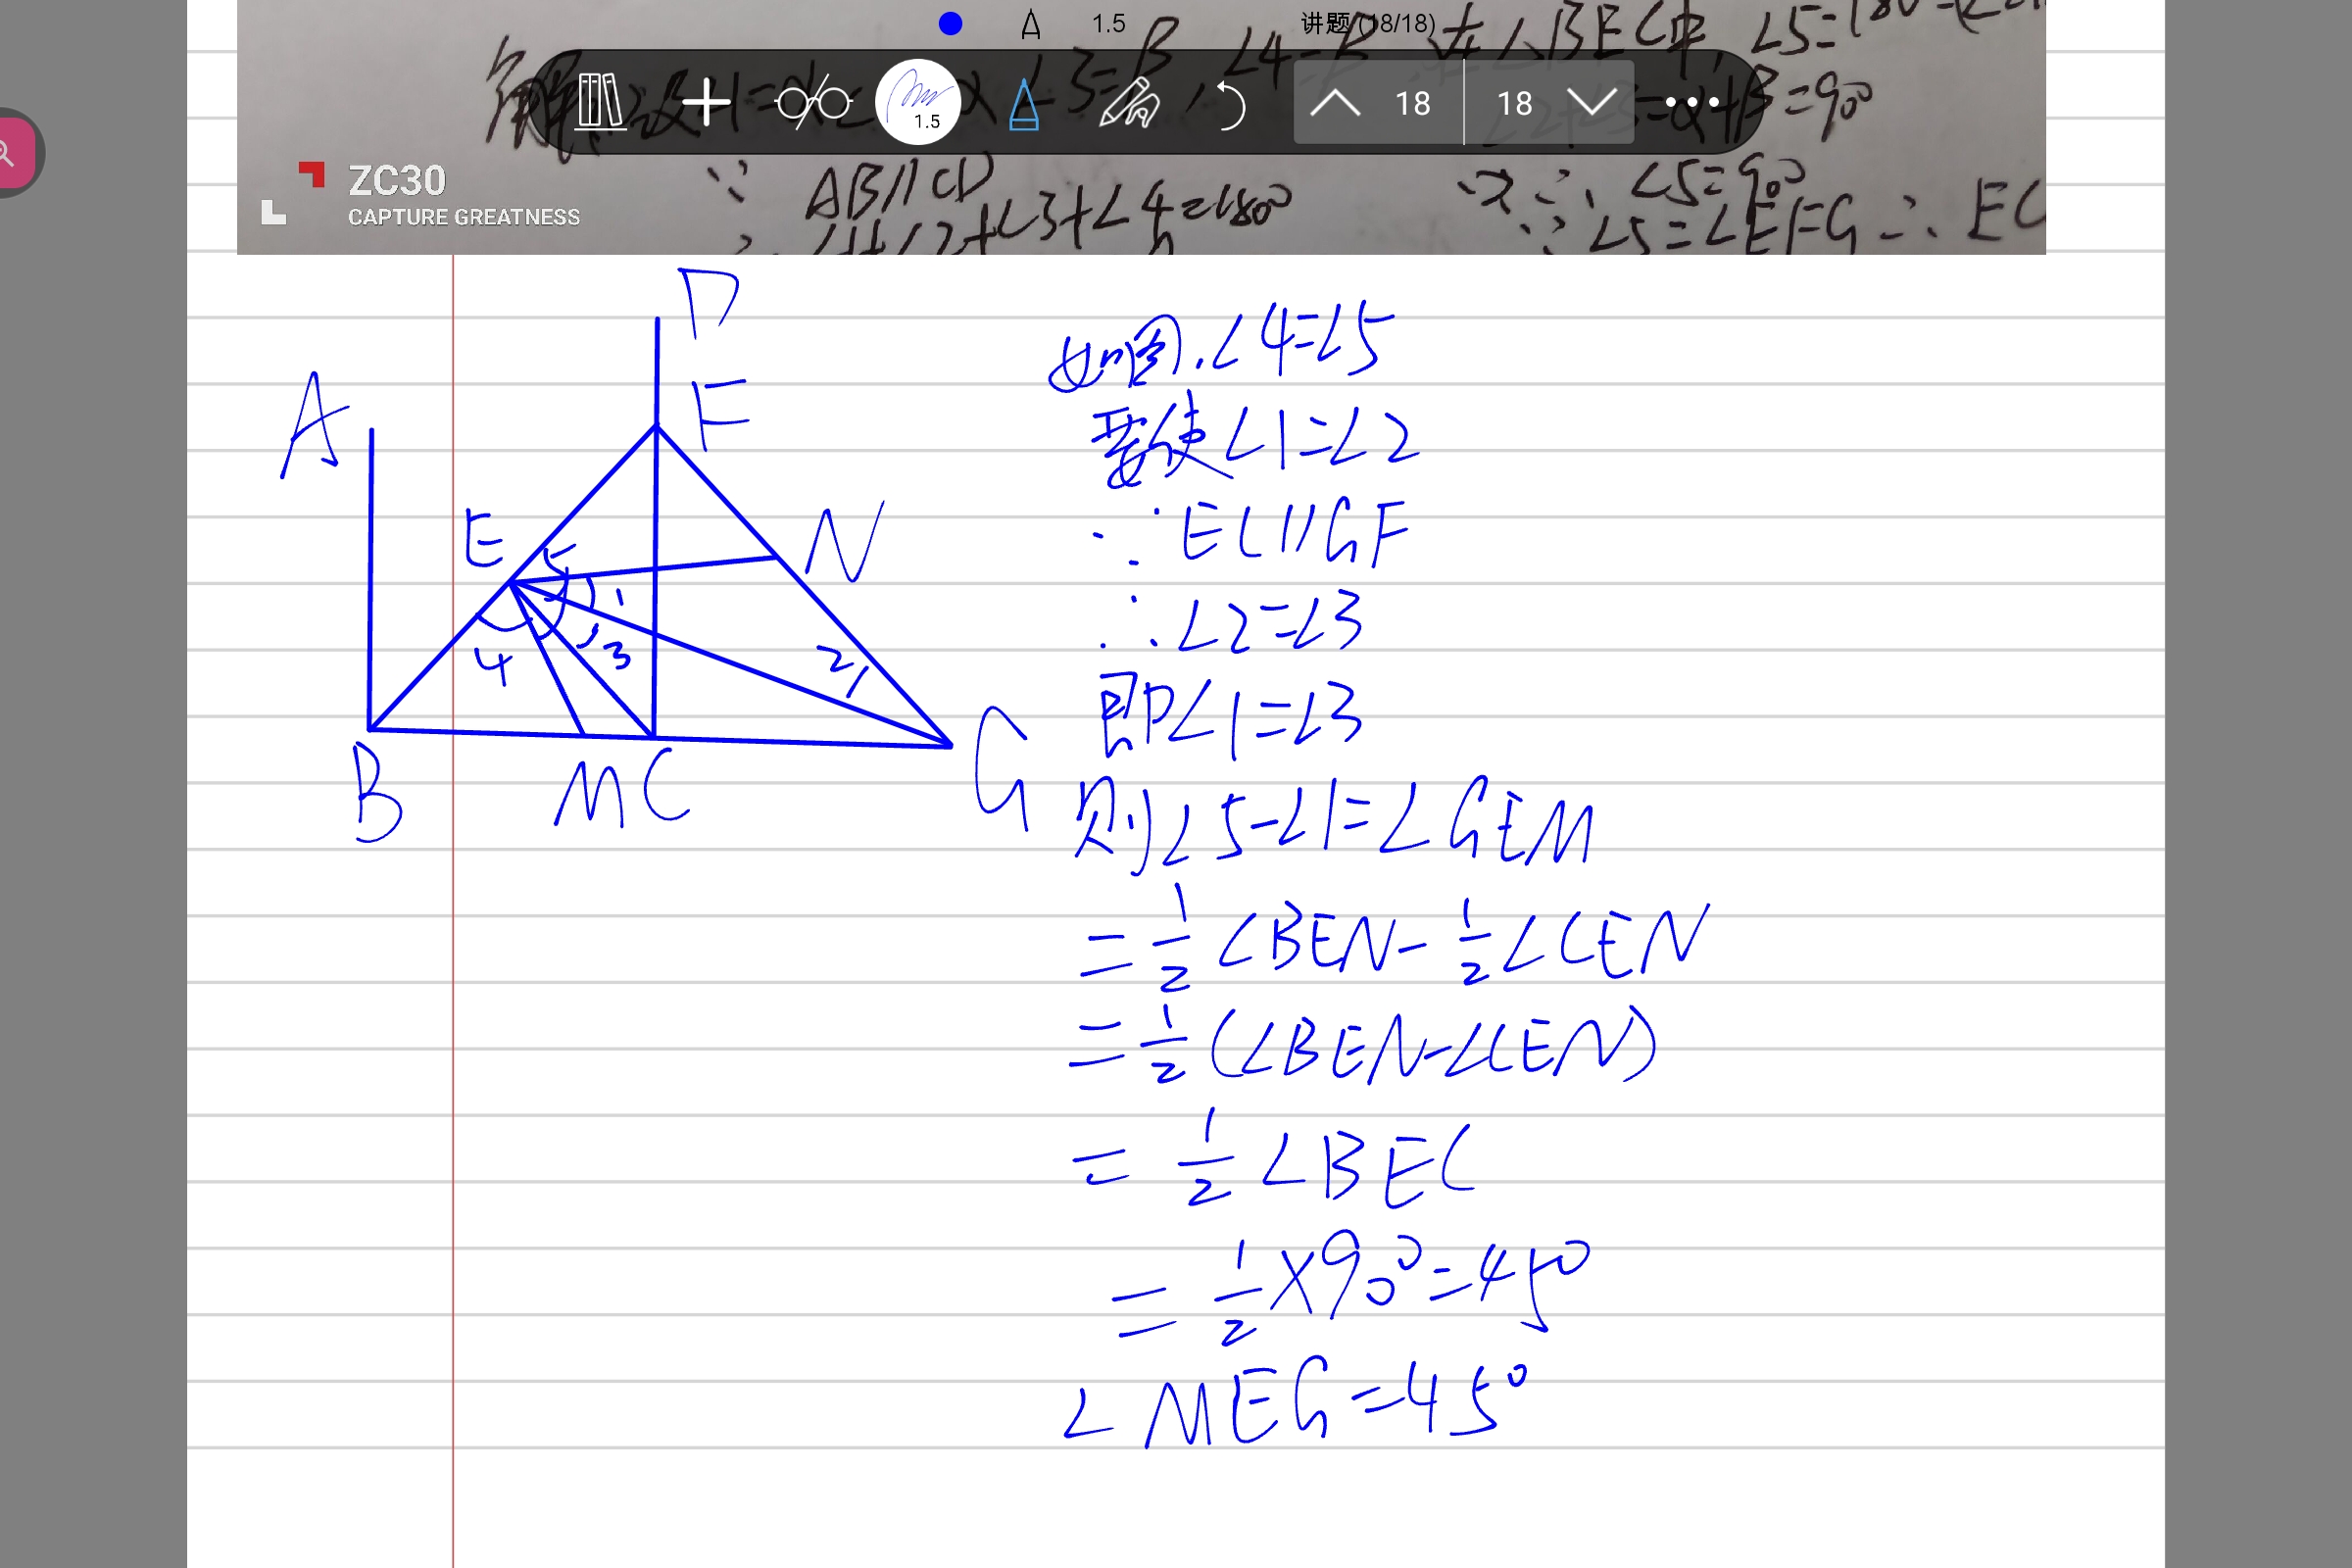 1.5 讲题 (18/18)
1.5 18 18
ZC30
CAPTURE GREATNESS
∵ AB∥CD
∠3+∠4=180°
=90°
∠5=90°
∵ ∠5=∠EFG ∴ EC
D
A F
E 5 N
1
4 3 2
B M C G
如图.∠4=∠5
要使∠1=∠2
∵EC∥GF
∴∠2=∠3
即∠1=∠3
则∠5-∠1=∠GEM
=1/2∠BEN-1/2∠CEN
=1/2(∠BEN-∠CEN)
=1/2∠BEC
=1/2×90°=45°
∠MEG=45°